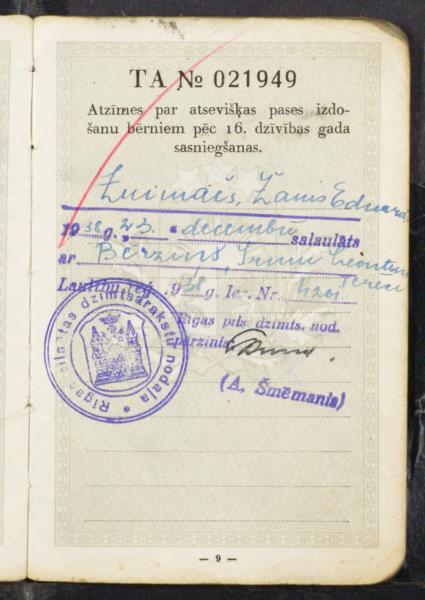 TA № 021949
Atzīmes par atsevišķas pases izdo-
šanu bērniem pēc 16. dzīvības gada
sasniegšanas.
Žanis Eduards
1938 g. 23. decembrī salaulāts
ar Bērziņš, Irmu Leontīni
Laulību reģ. 1938 g. Ier. Nr.
Rīgas pils. dzimts. nod.
pārzinis
(A. Šmēmanis)
Rīgas pilsētas dzimtsarakstu nodaļa
— 9 —